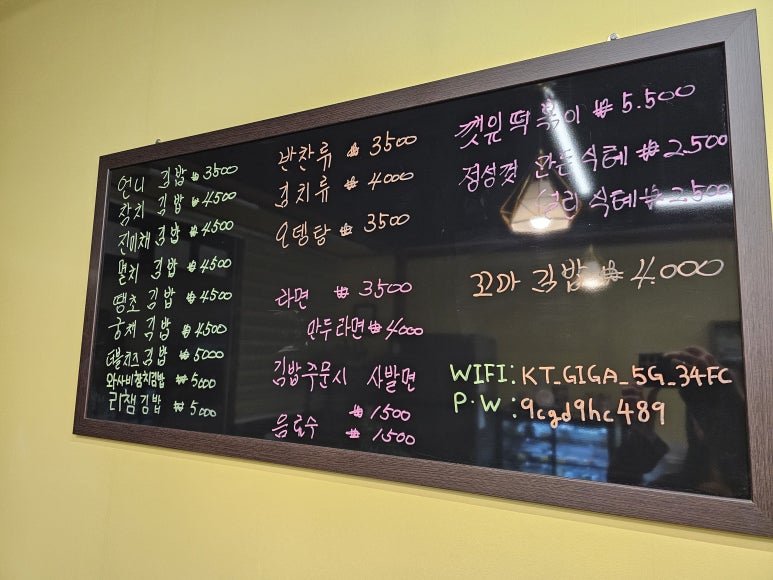 언니 김밥 ₩ 3500
참치 김밥 ₩ 4500
진미채 김밥 ₩ 4500
멸치 김밥 ₩ 4500
땡초 김밥 ₩ 4500
궁채 김밥 ₩ 4500
더블치즈 김밥 ₩ 5000
와사비참치김밥 ₩ 5000
리챔 김밥 ₩ 5000
반찬류 ₩ 3500
김치류 ₩ 4000
오뎅탕 ₩ 3500
라면 ₩ 3500
만두라면 ₩ 4000
김밥 주문시 사발면
₩ 1500
음료수 ₩ 1500
깻잎떡볶이 ₩ 5.500
정성껏 만든 식혜 ₩ 2.500
식혜 ₩ 2500
꼬마 김밥 ₩ 4.000
WIFI: KT_GIGA_5G_34FC
P.W: 9cgd9hc489